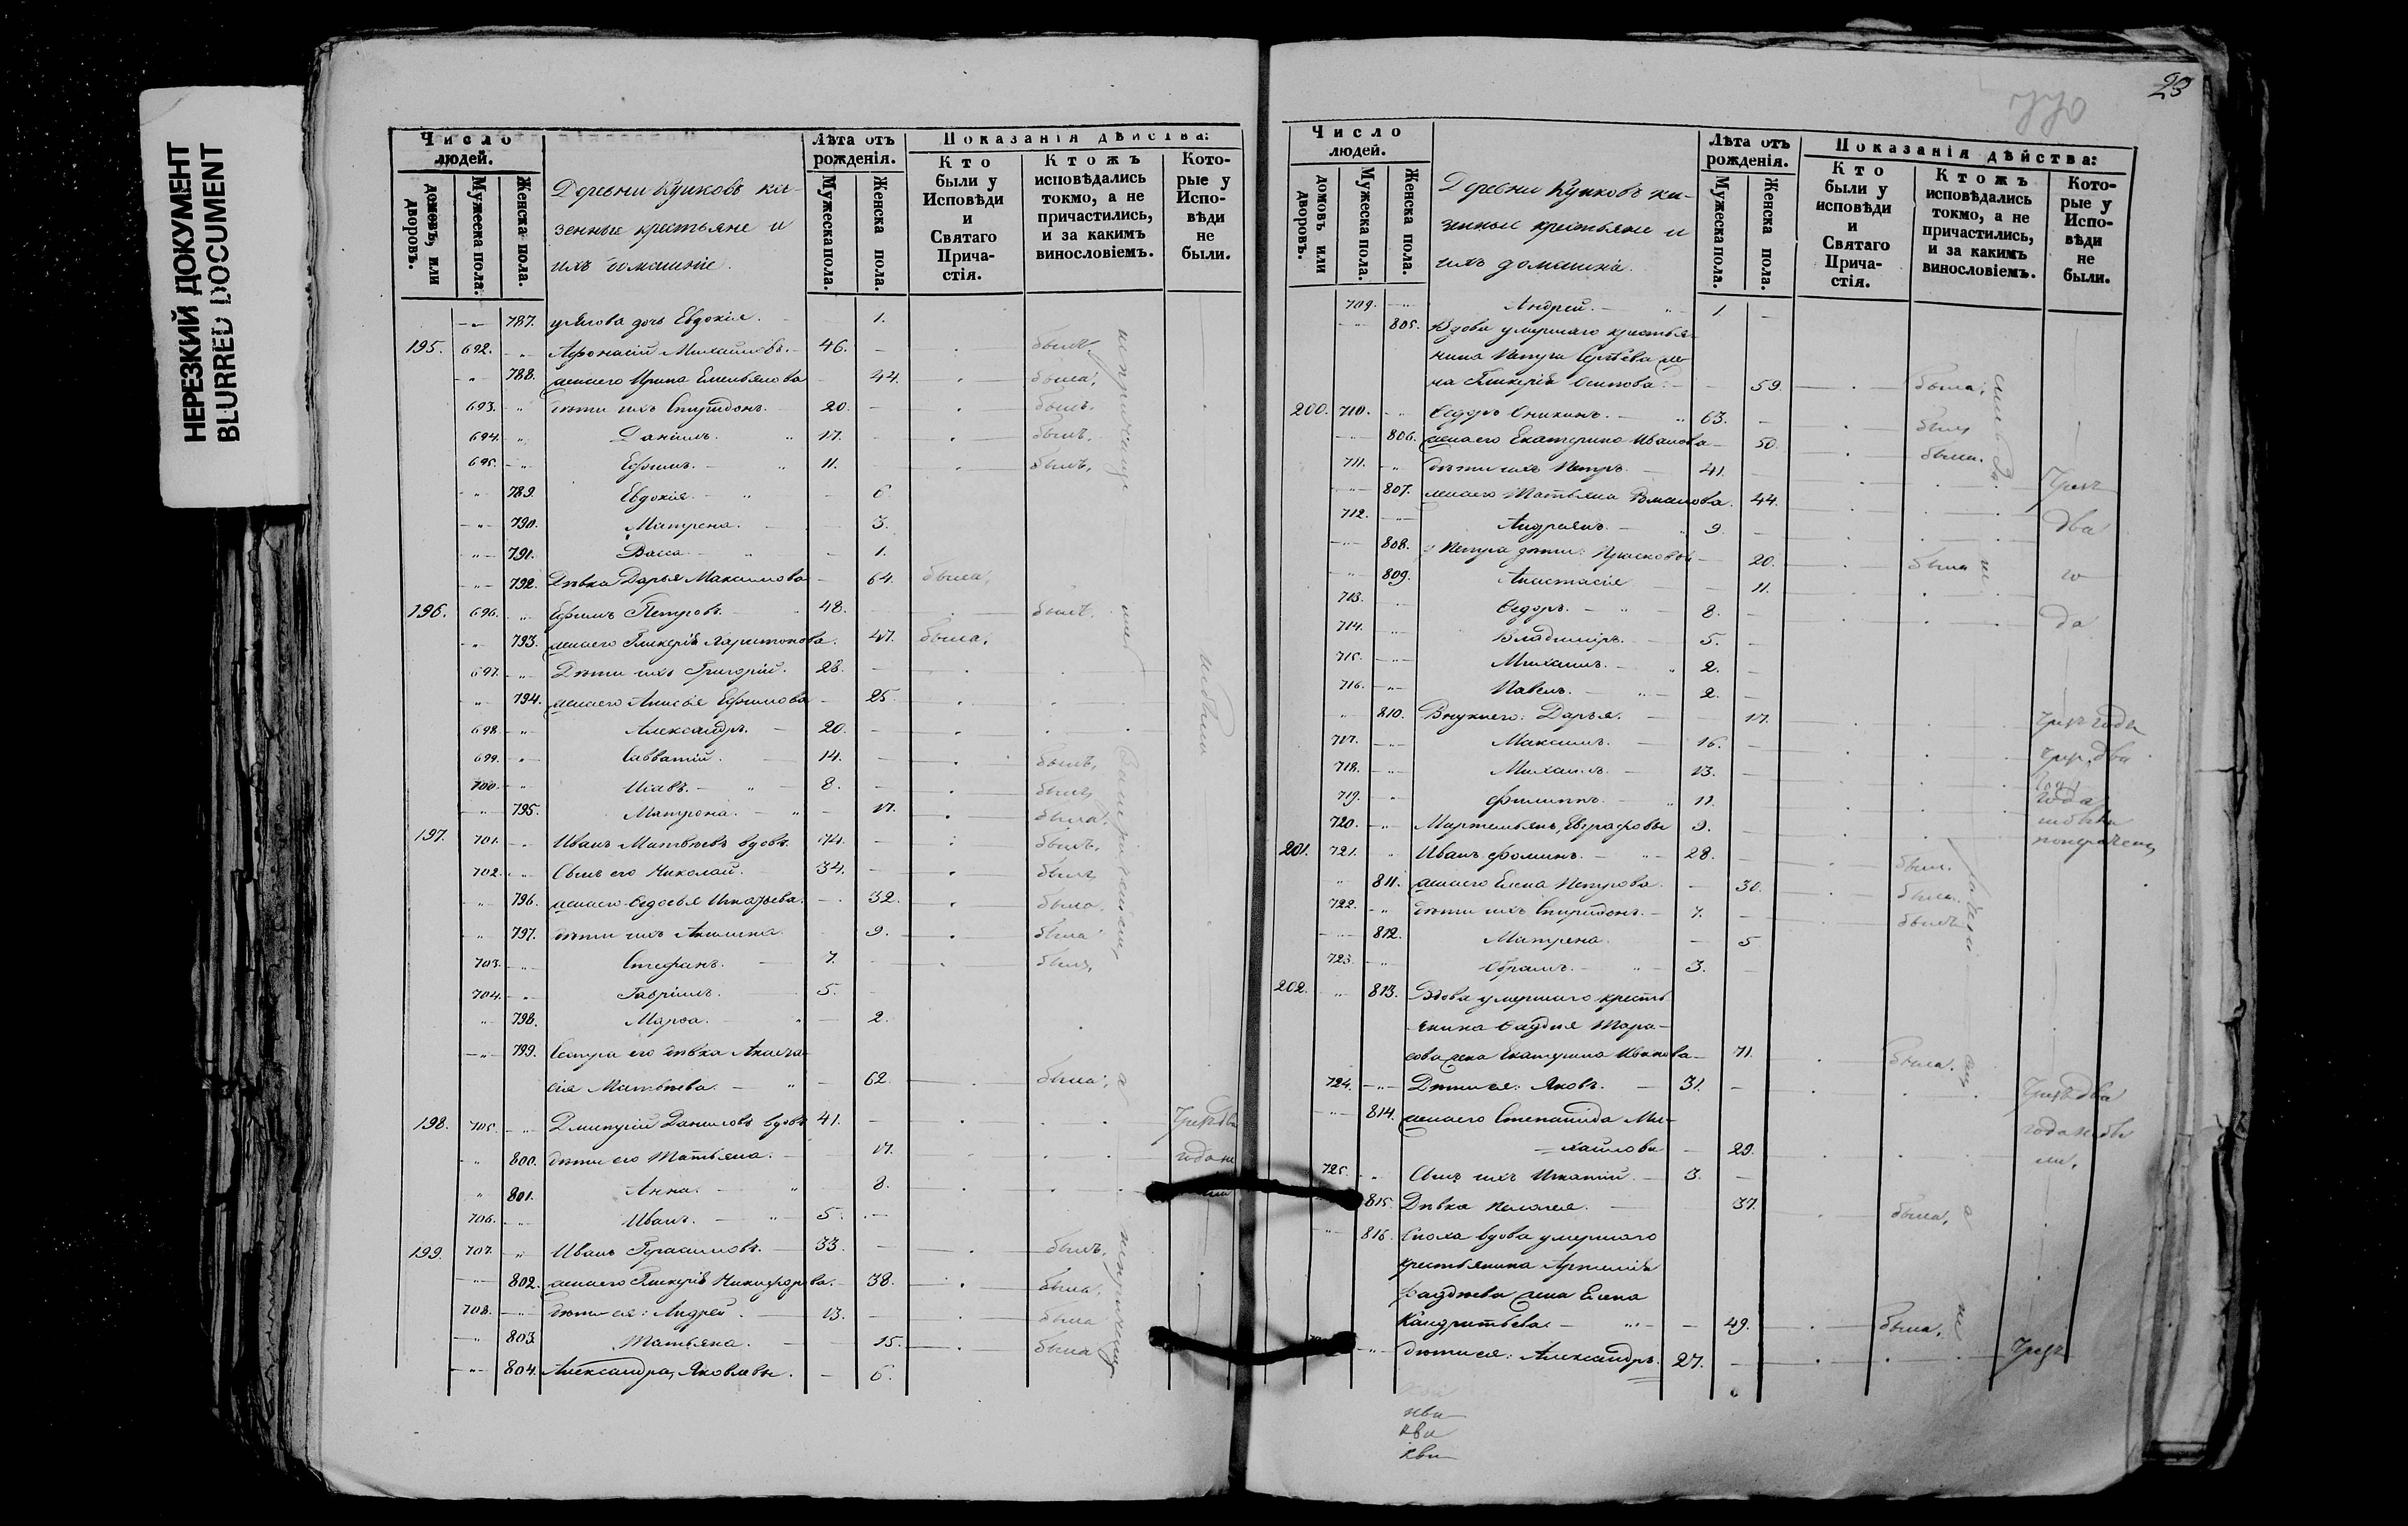 НЕРЕЗКИЙ ДОКУМЕНТ
BLURRED DOCUMENT
Число людей.
домовъ, или дворовъ.
Мужеска пола.
Женска пола.
Деревни Куликовъ ка-
зенные крестьяне и
ихъ домашніе.
Лѣта отъ рожденія.
Мужеска пола.
Женска пола.
Показанія дѣйства:
Кто были у Исповѣди и Святаго Прича-стія.
Ктожъ исповѣдались токмо, а не причастились, и за какимъ винословіемъ.
Кото-рые у Испо-вѣди не были.
787. дочь Евдокія. 1.
195. 692. Афонасій Михайловъ. 46. былъ,
788. жена его Ирина Емельянова 44. была,
693. дѣти ихъ Спиридонъ. 20. былъ,
694. Даніилъ. 17. былъ,
695. Ефимъ. 11. былъ,
789. Евдокія. 6
790. Матрена. 3.
791. Васса. 1.
792. Дѣвка Дарья Максимова 64. была,
196. 696. Ефимъ Петровъ. 48. былъ.
793. жена его Гликерія Харитонова. 47. была,
697. Дѣти ихъ Григорій. 28.
794. жена его Анисья Ефимова 25.
698. Александръ. 20.
699. Савватій. 14. былъ,
700. Исавъ. 8. былъ
795. Матрона. 17. была.
197. 701. Иванъ Матвѣевъ вдовъ. 74. былъ,
702. Сынъ его Николай. 34. былъ
796. жена его Федосья Игнатьева. 32. была.
797. дѣти ихъ Акилина. 9. была
703. Стефанъ. 7. былъ,
704. Гавріилъ. 5.
798. Марѳа. 2.
799. Сестра его дѣвка Анаста-
сія Матвѣева. 62. была,
198. 705. Дмитрій Даниловъ вдовъ 41.
800. дѣти его Татьяна. 17. года не
801. Анна. 8.
706. Иванъ. 5.
199. 707. Иванъ Герасимовъ. 33. былъ,
802. жена его Гликерія Никифорова. 38. была.
708. дѣти ея: Андрей. 13. была
803. Татьяна. 15. была
804. Александра, Яковлевы. 6.
23
770
Число людей.
домовъ или дворовъ.
Мужеска пола.
Женска пола.
Деревни Куликовъ ка-
зенные крестьяне и
ихъ домашніе.
Лѣта отъ рожденія.
Мужеска пола.
Женска пола.
Показанія дѣйства:
Кто были у исповѣди и Святаго Прича-стія.
Ктожъ исповѣдались токмо, а не причастились, и за какимъ винословіемъ.
Кото-рые у Испо-вѣди не были.
709. Андрей. 1
805. Вдова умершаго крестья-
нина Петра Сергѣева же-
на Гликерія Осипова. 59. была,
200. 710. Ѳедоръ Оникинъ. 63. былъ
806. жена его Екатерина Иванова 50. была.
711. дѣти ихъ Петръ. 41. Чрезъ
807. жена его Татьяна Власова. 44.
712. Андреянъ. 9. два
808. Петра дѣти: Прасковья 20. была го
809. Анастасія 11.
713. Ѳедоръ. 8. да
714. Владиміръ. 5.
715. Михаилъ. 2.
716. Павелъ. 2.
810. Внуки его: Дарья. 17.
717. Максимъ. 16. два
718. Михаилъ. 13.
719. Филиппъ. 11. года
720. Мартемьянъ, Евграфовы 9.
201. 721. Иванъ Фоминъ. 28. былъ.
811. жена его Елена Петрова. 30. была.
722. дѣти ихъ Спиридонъ. 7. былъ
812. Матрена. 5
723. Абрамъ. 3.
202. 813. Вдова умершаго кресть
янина Фаддея Тара-
сова жена Екатерина Иванова 71. была.
724. Дѣти ея: Яковъ. 31. Чрезъ два
814. жена его Степанида Ми-
хайлова 29.
725. Сынъ ихъ Игнатій. 3.
815. Дѣвка Пелагея. 37. была,
816. Сноха вдова умершаго
крестьянина Артемія
Фаддѣева жена Елена
Кандратьева. 49. была,
дѣти ея: Александръ. 27. Чрезъ